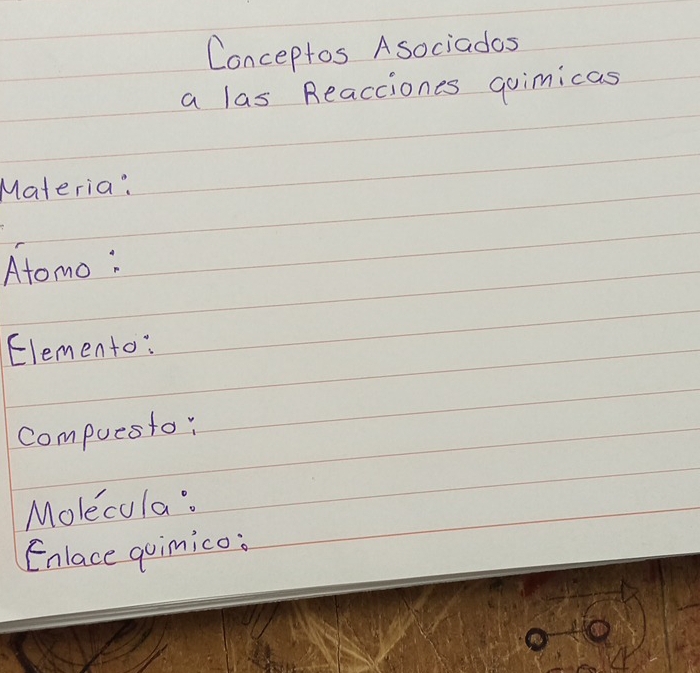 Conceptos Asociados
a las Reacciones quimicas
Materia:
Átomo:
Elemento:
Compuesto:
Molécula:
Enlace quimico: